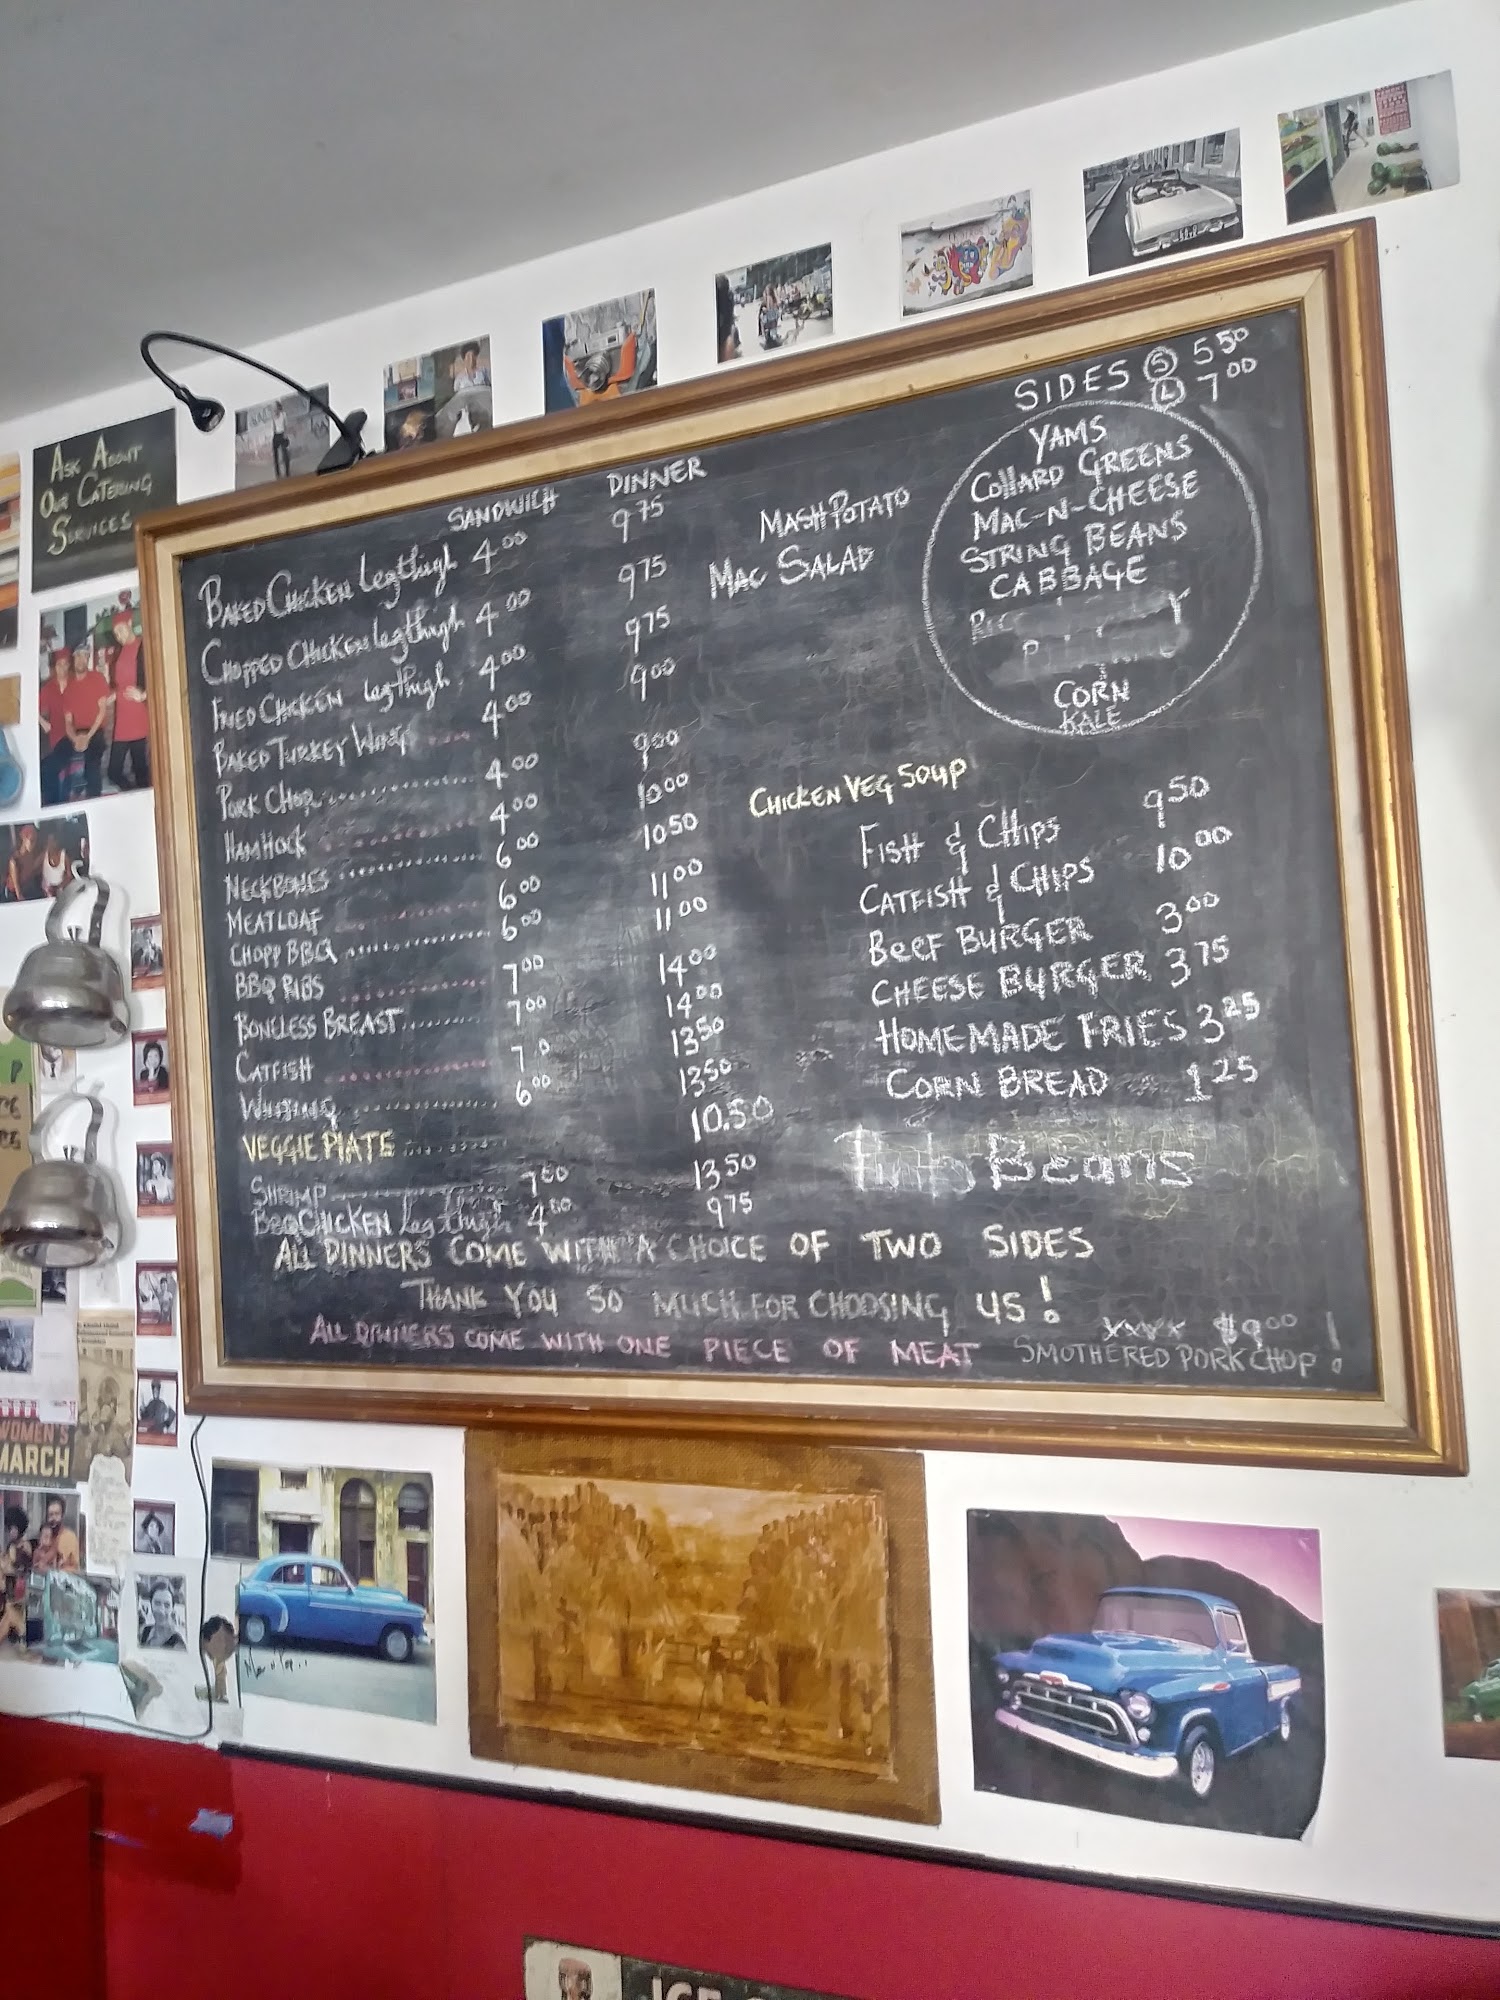 ASK ABOUT
OUR CATERING
SERVICES
SIDES S 5 50
L 7 00
YAMS
COllARD GREENS
MAC-N-CHEESE
STRING BEANS
CABBAGE
CORN
KALE
SANDWICH DINNER
BAKED CHICKEN Legthigh 4 00 9 75
CHOPPED CHICKEN legthigh 4 00 9 75
FRIED CHICKEN legthigh 4 00 9 75
BAKED TURKEY WINGS 4 00 9 00
PORK CHOP 4 00 9 00
HAM HOCK 4 00 10 00
NECKBONES 6 00 10 50
MEATLOAF 6 00 11 00
CHOPP BBQ 6 00 11 00
BBQ RIBS 7 00 14 00
BONELESS BREAST 7 00 14 00
CATFISH 7 13 50
WHITING 6 00 13 50
VEGGIE PlATE 10.50
SHRIMP 7 00 13 50
BBQ CHICKEN Leg thigh 4 00 9 75
MASH POTATO
MAC SALAD
CHICKEN VEG SOUP
FISH & CHIPS 9 50
CATFISH & CHIPS 10 00
BEEF BURGER 3 00
CHEESE BURGER 3 75
HOMEMADE FRIES 3 25
CORN BREAD 1 25
Beans
ALL DINNERS COME WITH A CHOICE OF TWO SIDES
THANK YOU SO MUCH FOR CHOOSING US!
ALL DINNERS COME WITH ONE PIECE OF MEAT
$9 00 !
SMOTHERED PORK CHOP !
WOMEN'S
MARCH